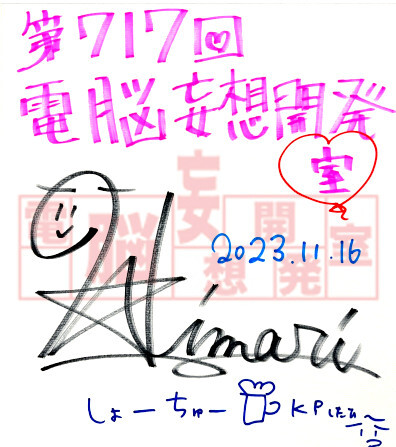 第717回
電脳妄想開発
室
電脳妄想開発室
2023.11.16
Himari
しょーちゅー KPしたい